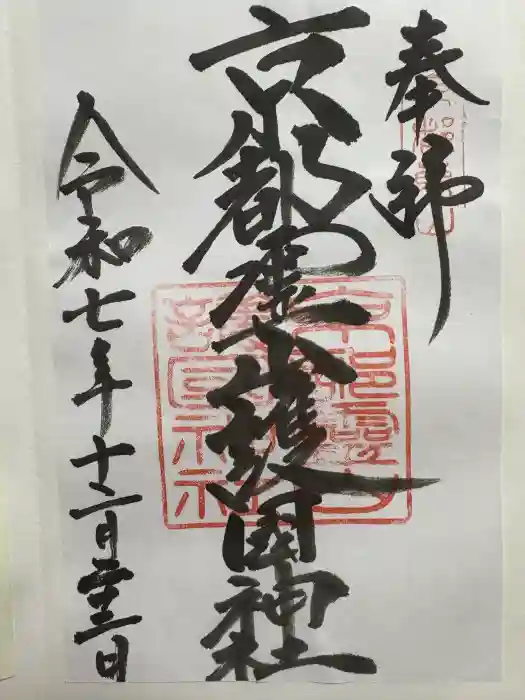 奉拝
京都霊山護國神社
令和七年十二月二十三日